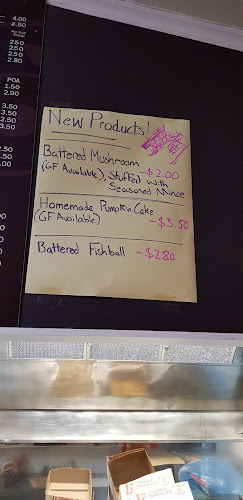 4.00
2.50
2.50
2.50
2.50
2.80
POA
1.50
2.90
3.50
3.50
2.50
3.50
New Products!
Battered Mushroom
(GF Available), -$2.00
Stuffed with
Seasoned Mince
Homemade Pumpkin Cake
(GF Available) -$3.50
Battered Fishball -$2.80